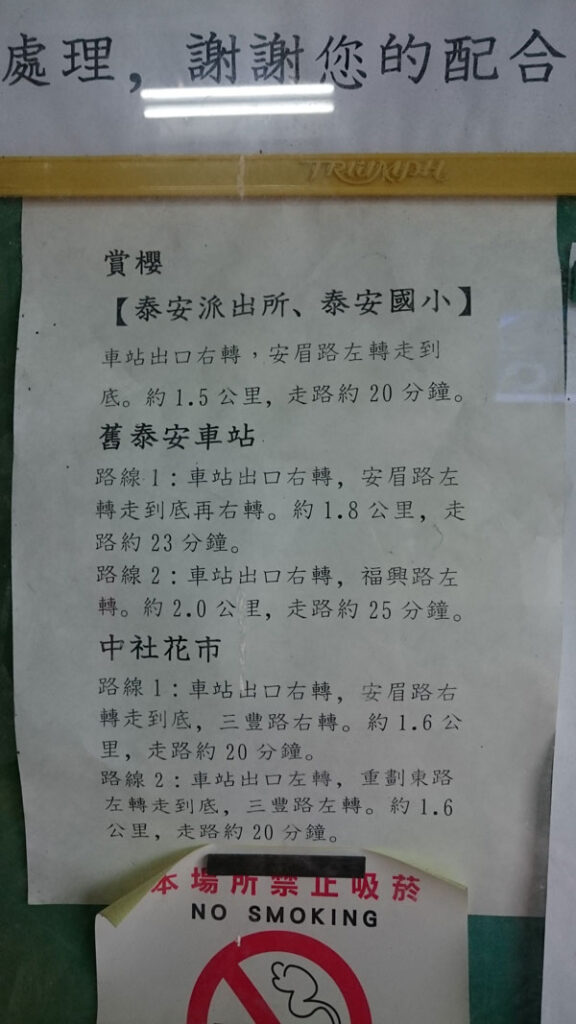 處理，謝謝您的配合
TRIUMPH
賞櫻
【泰安派出所、泰安國小】
車站出口右轉，安眉路左轉走到
底。約 1.5 公里，走路約 20 分鐘。
舊泰安車站
路線 1：車站出口右轉，安眉路左
轉走到底再右轉。約 1.8 公里，走
路約 23 分鐘。
路線 2：車站出口右轉，福興路左
轉。約 2.0 公里，走路約 25 分鐘。
中社花市
路線 1：車站出口右轉，安眉路右
轉走到底，三豐路右轉。約 1.6 公
里，走路約 20 分鐘。
路線 2：車站出口左轉，重劃東路
左轉走到底，三豐路左轉。約 1.6
公里，走路約 20 分鐘。
本場所禁止吸菸
NO SMOKING